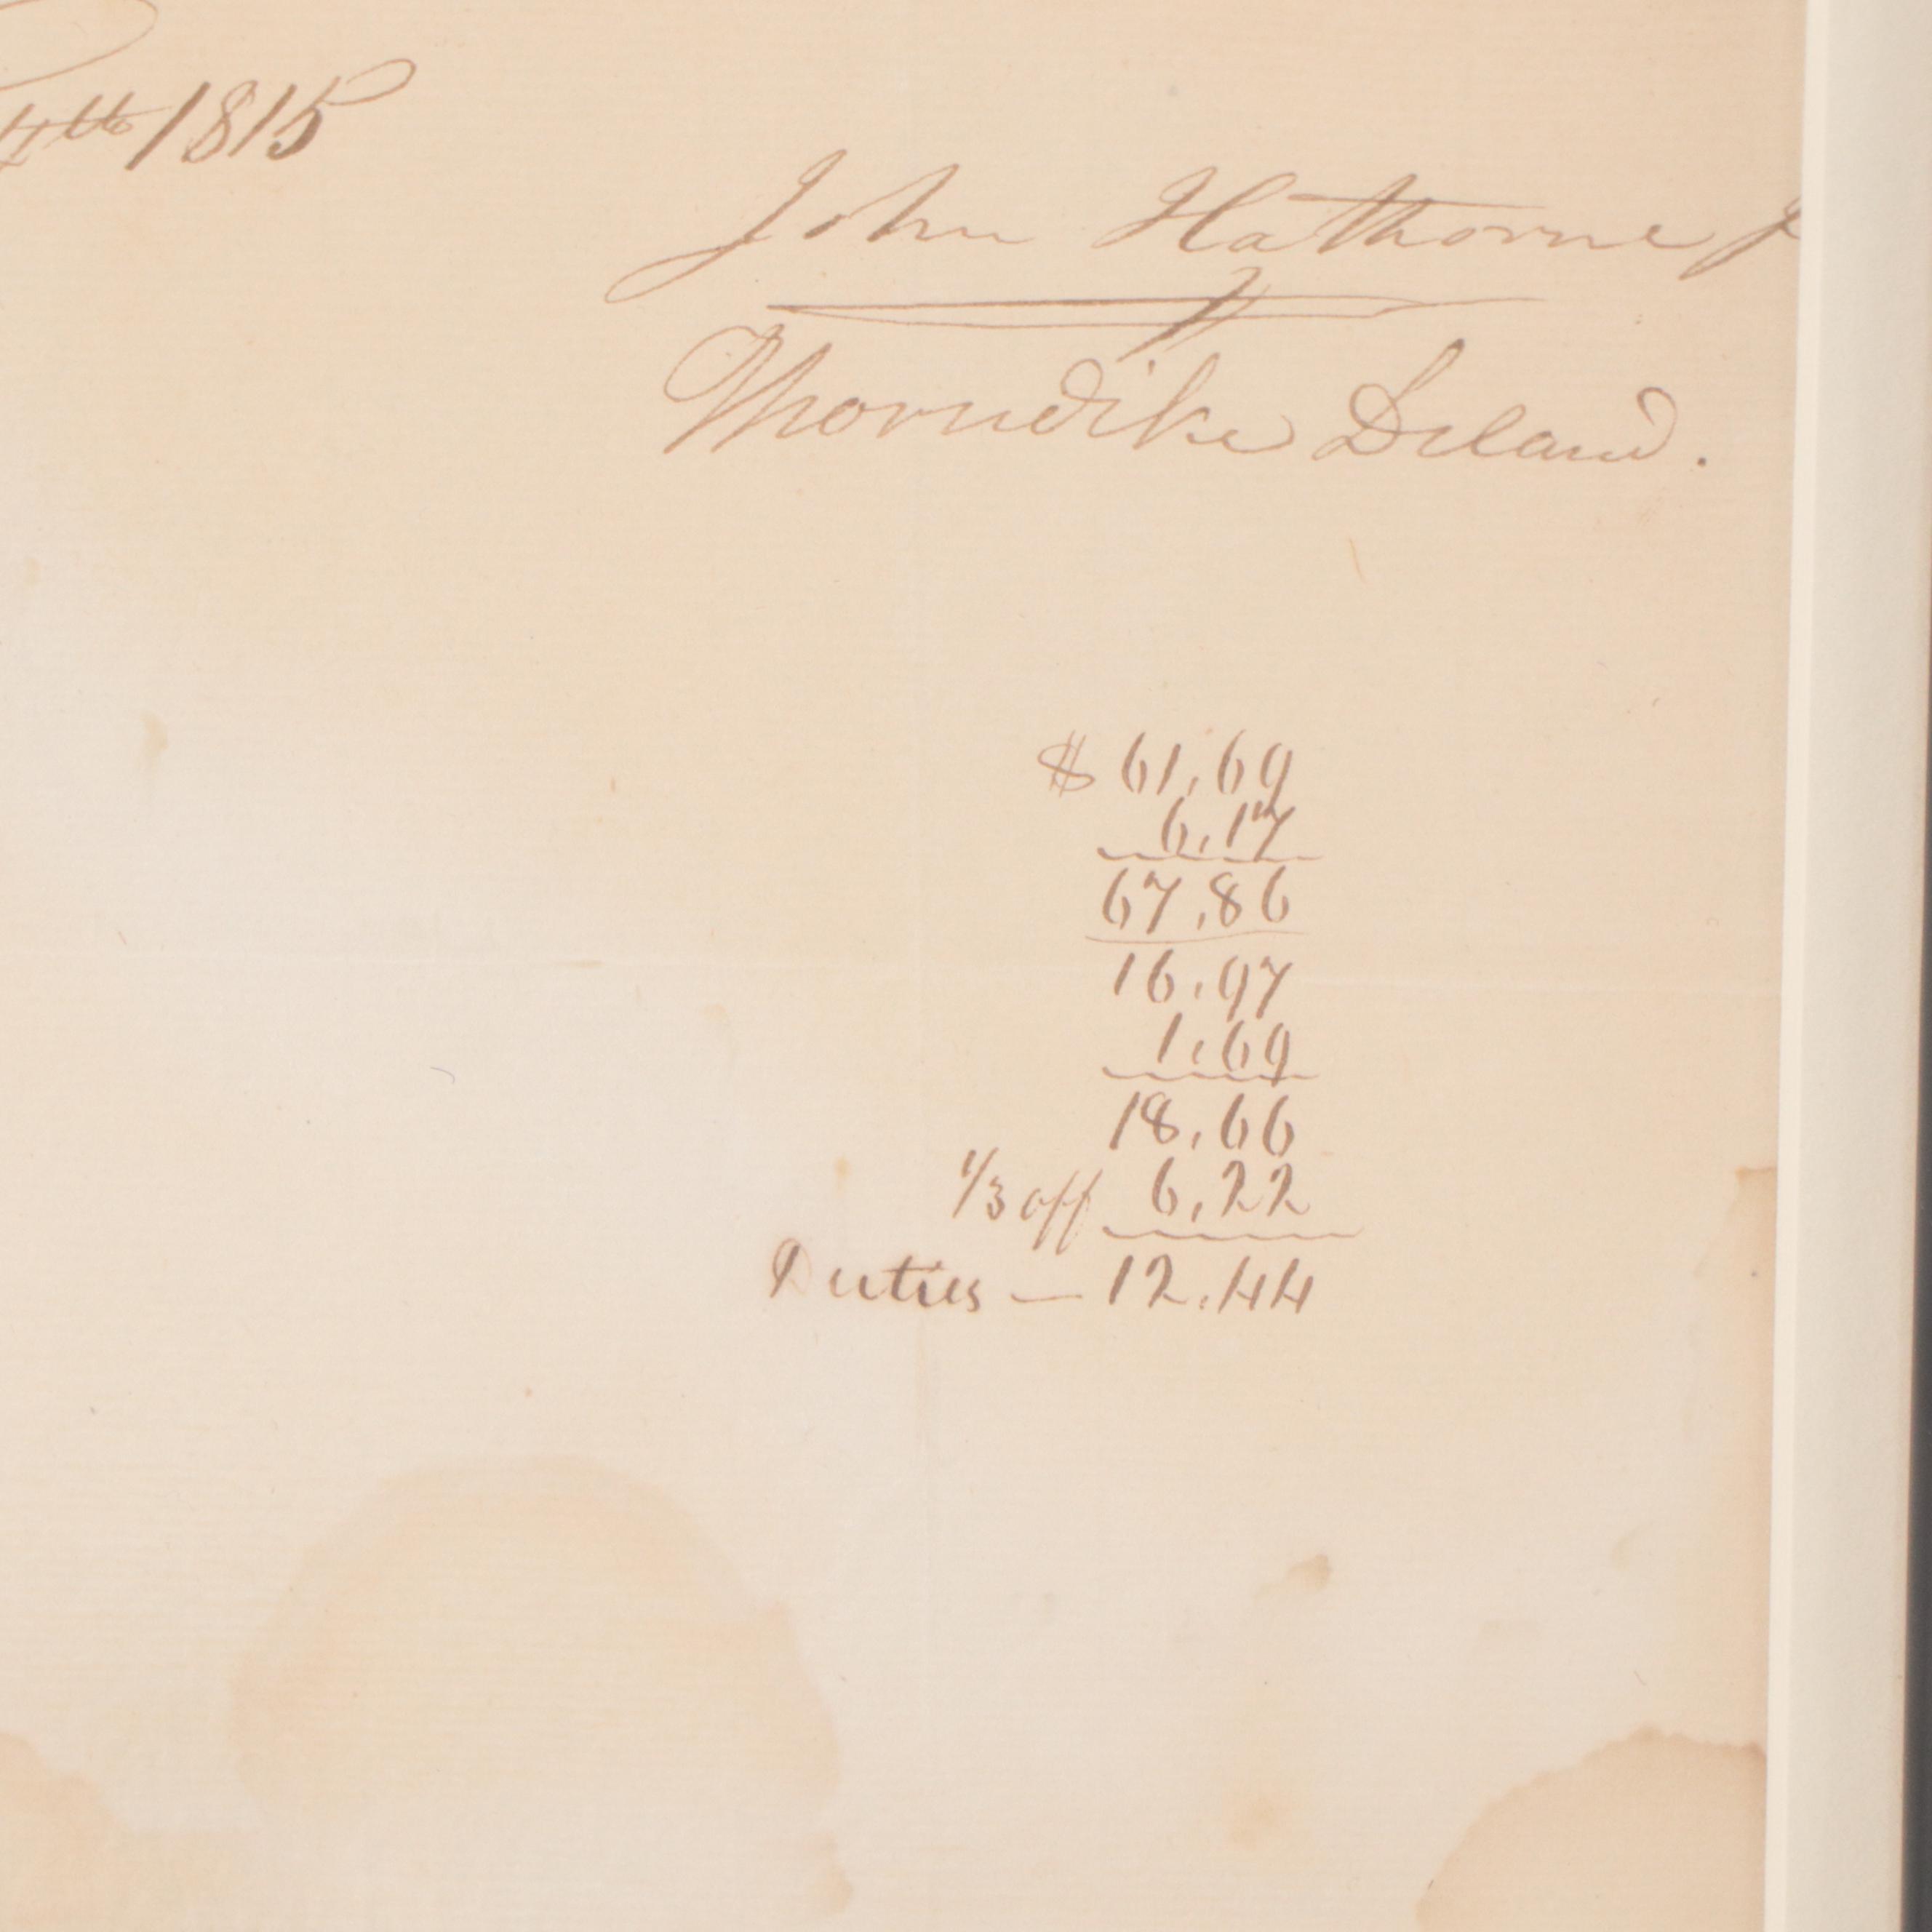 4th 1815
John Hathorne J
Thorndike Deland.
$ 61,69
6,17
67,86
16,97
1,69
18,66
1/3 off 6,22
Duties — 12,44